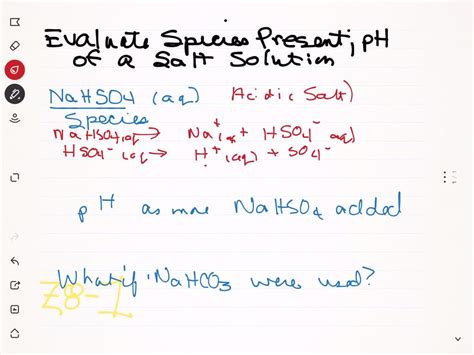 Evaluate Species Present, pH
of a Salt Solution
NaHSO4 (aq) Acidic Salt)
Species
NaHSO4(aq) → Na+(aq) + HSO4- aq)
HSO4- (aq) → H+ (aq) + SO4-
pH as more NaHSO4 added
What if NaHCO3 were used?